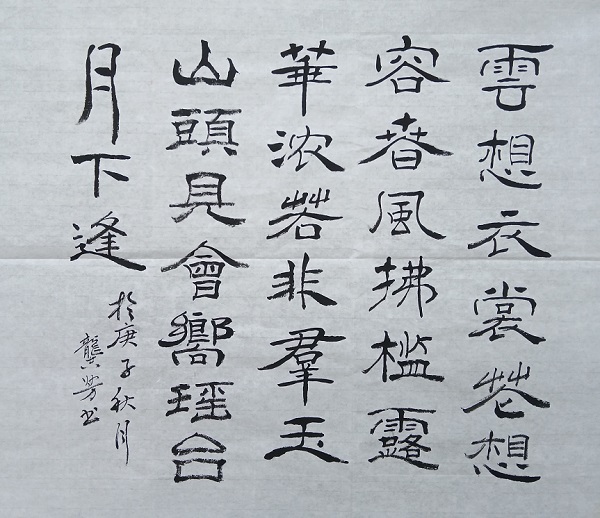 雲想衣裳花想
容春風拂檻露
華浓若非羣玉
山頭見會嚮瑶台
月下逢
於庚子秋月
龔芳书